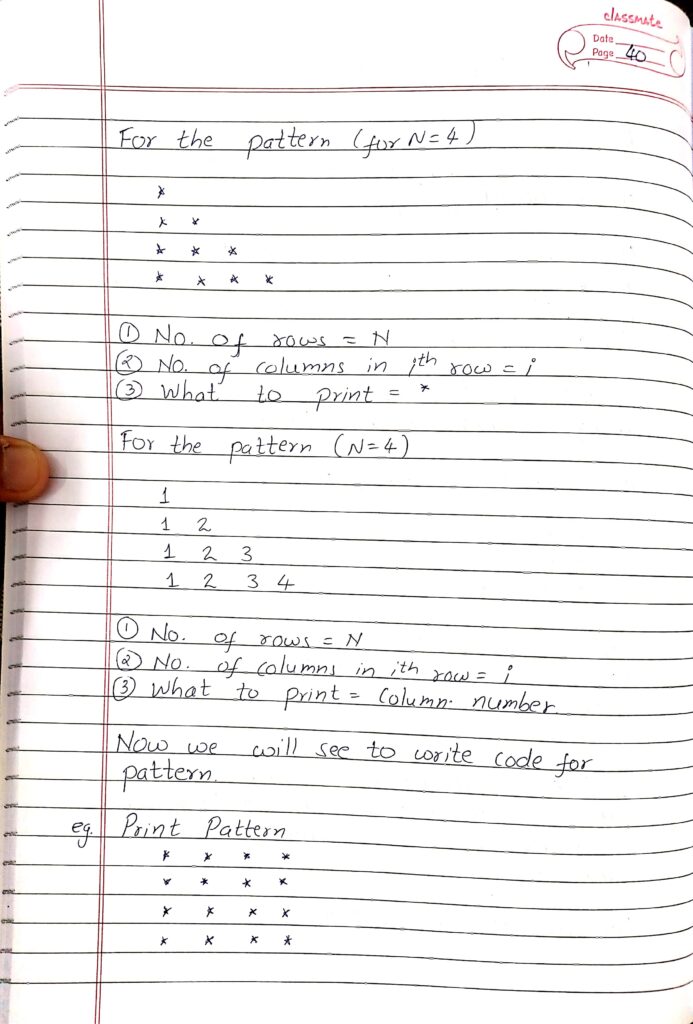 classmate
Date
Page 40
For the pattern (for N=4)
*
* *
* * *
* * * *
① No. of rows = N
② No. of columns in ith row = i
③ What to print = *
For the pattern (N=4)
1
1 2
1 2 3
1 2 3 4
① No. of rows = N
② No. of columns in ith row = i
③ What to print = Column. number
Now we will see to write code for
pattern.
eg. Print Pattern
* * * *
* * * *
* * * *
* * * *